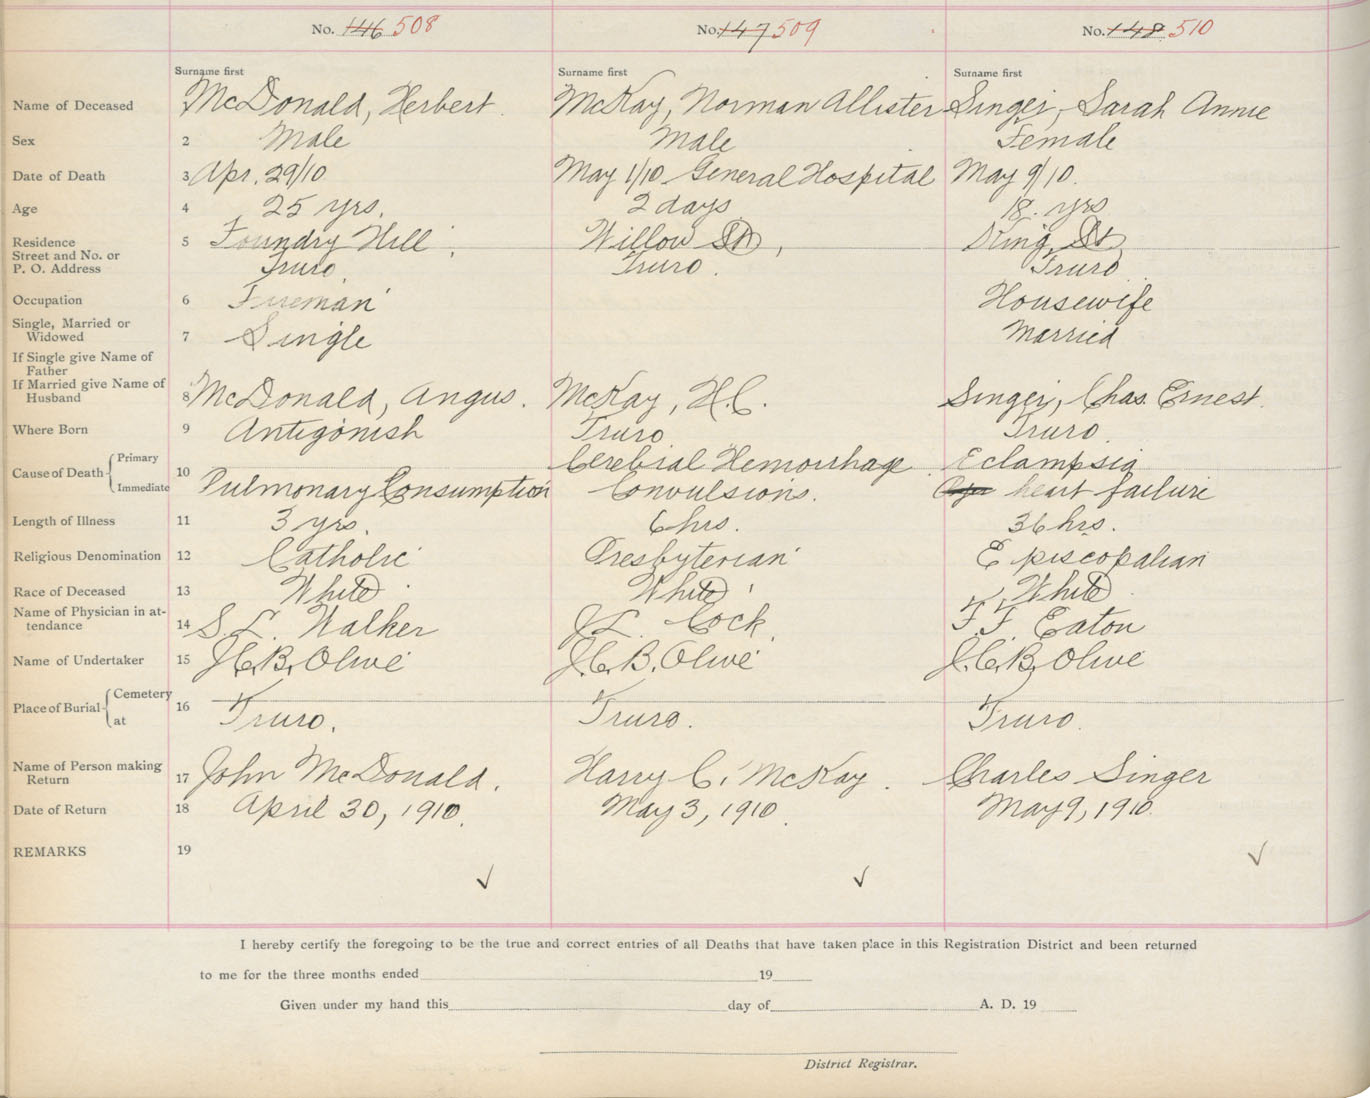 No. 146 508 No. 147 509 No. 148 510
Surname first Surname first Surname first
Name of Deceased McDonald, Herbert. McKay, Norman Allister Singer, Sarah Annie
Sex 2 Male Male Female
Date of Death 3 Apr. 29/10 May 1/10 General Hospital May 9/10.
Age 4 25 yrs. 2 days 18 yrs
Residence 5 Foundry Hill, Willow St, King St,
Street and No. or
P. O. Address Truro. Truro. Truro
Occupation 6 Fireman Housewife
Single, Married or
Widowed 7 Single Married
If Single give Name of
Father
If Married give Name of
Husband 8 McDonald, Angus. McKay, H.C. Singer, Chas. Ernest.
Where Born 9 Antigonish Truro Truro.
Cause of Death Primary Cerebral Hemorrhage. Eclampsia
10
Immediate Pulmonary Consumption Convulsions. heart failure
Length of Illness 11 3 yrs. 6 hrs. 36 hrs.
Religious Denomination 12 Catholic Presbyterian Episcopalian
Race of Deceased 13 White White White
Name of Physician in at-
tendance 14 S. L. Walker J. L. Cock F. F. Eaton
Name of Undertaker 15 J.C.B. Olive J.C.B. Olive J.C.B. Olive
Place of Burial Cemetery
16
at Truro. Truro. Truro.
Name of Person making
Return 17 John McDonald. Harry C. McKay. Charles Singer
Date of Return 18 April 30, 1910. May 3, 1910. May 9, 1910.
REMARKS 19
✓ ✓ ✓
I hereby certify the foregoing to be the true and correct entries of all Deaths that have taken place in this Registration District and been returned
to me for the three months ended 19
Given under my hand this day of A. D. 19
District Registrar.